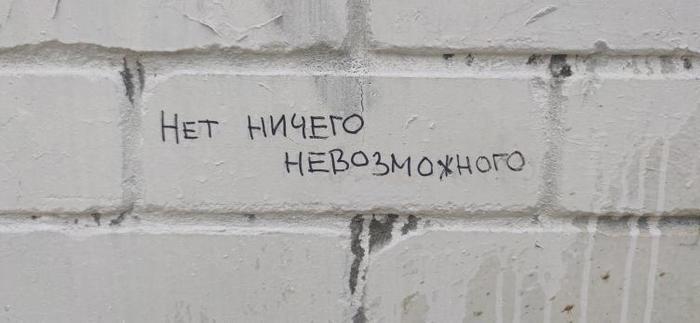 Нет ничего
невозможного